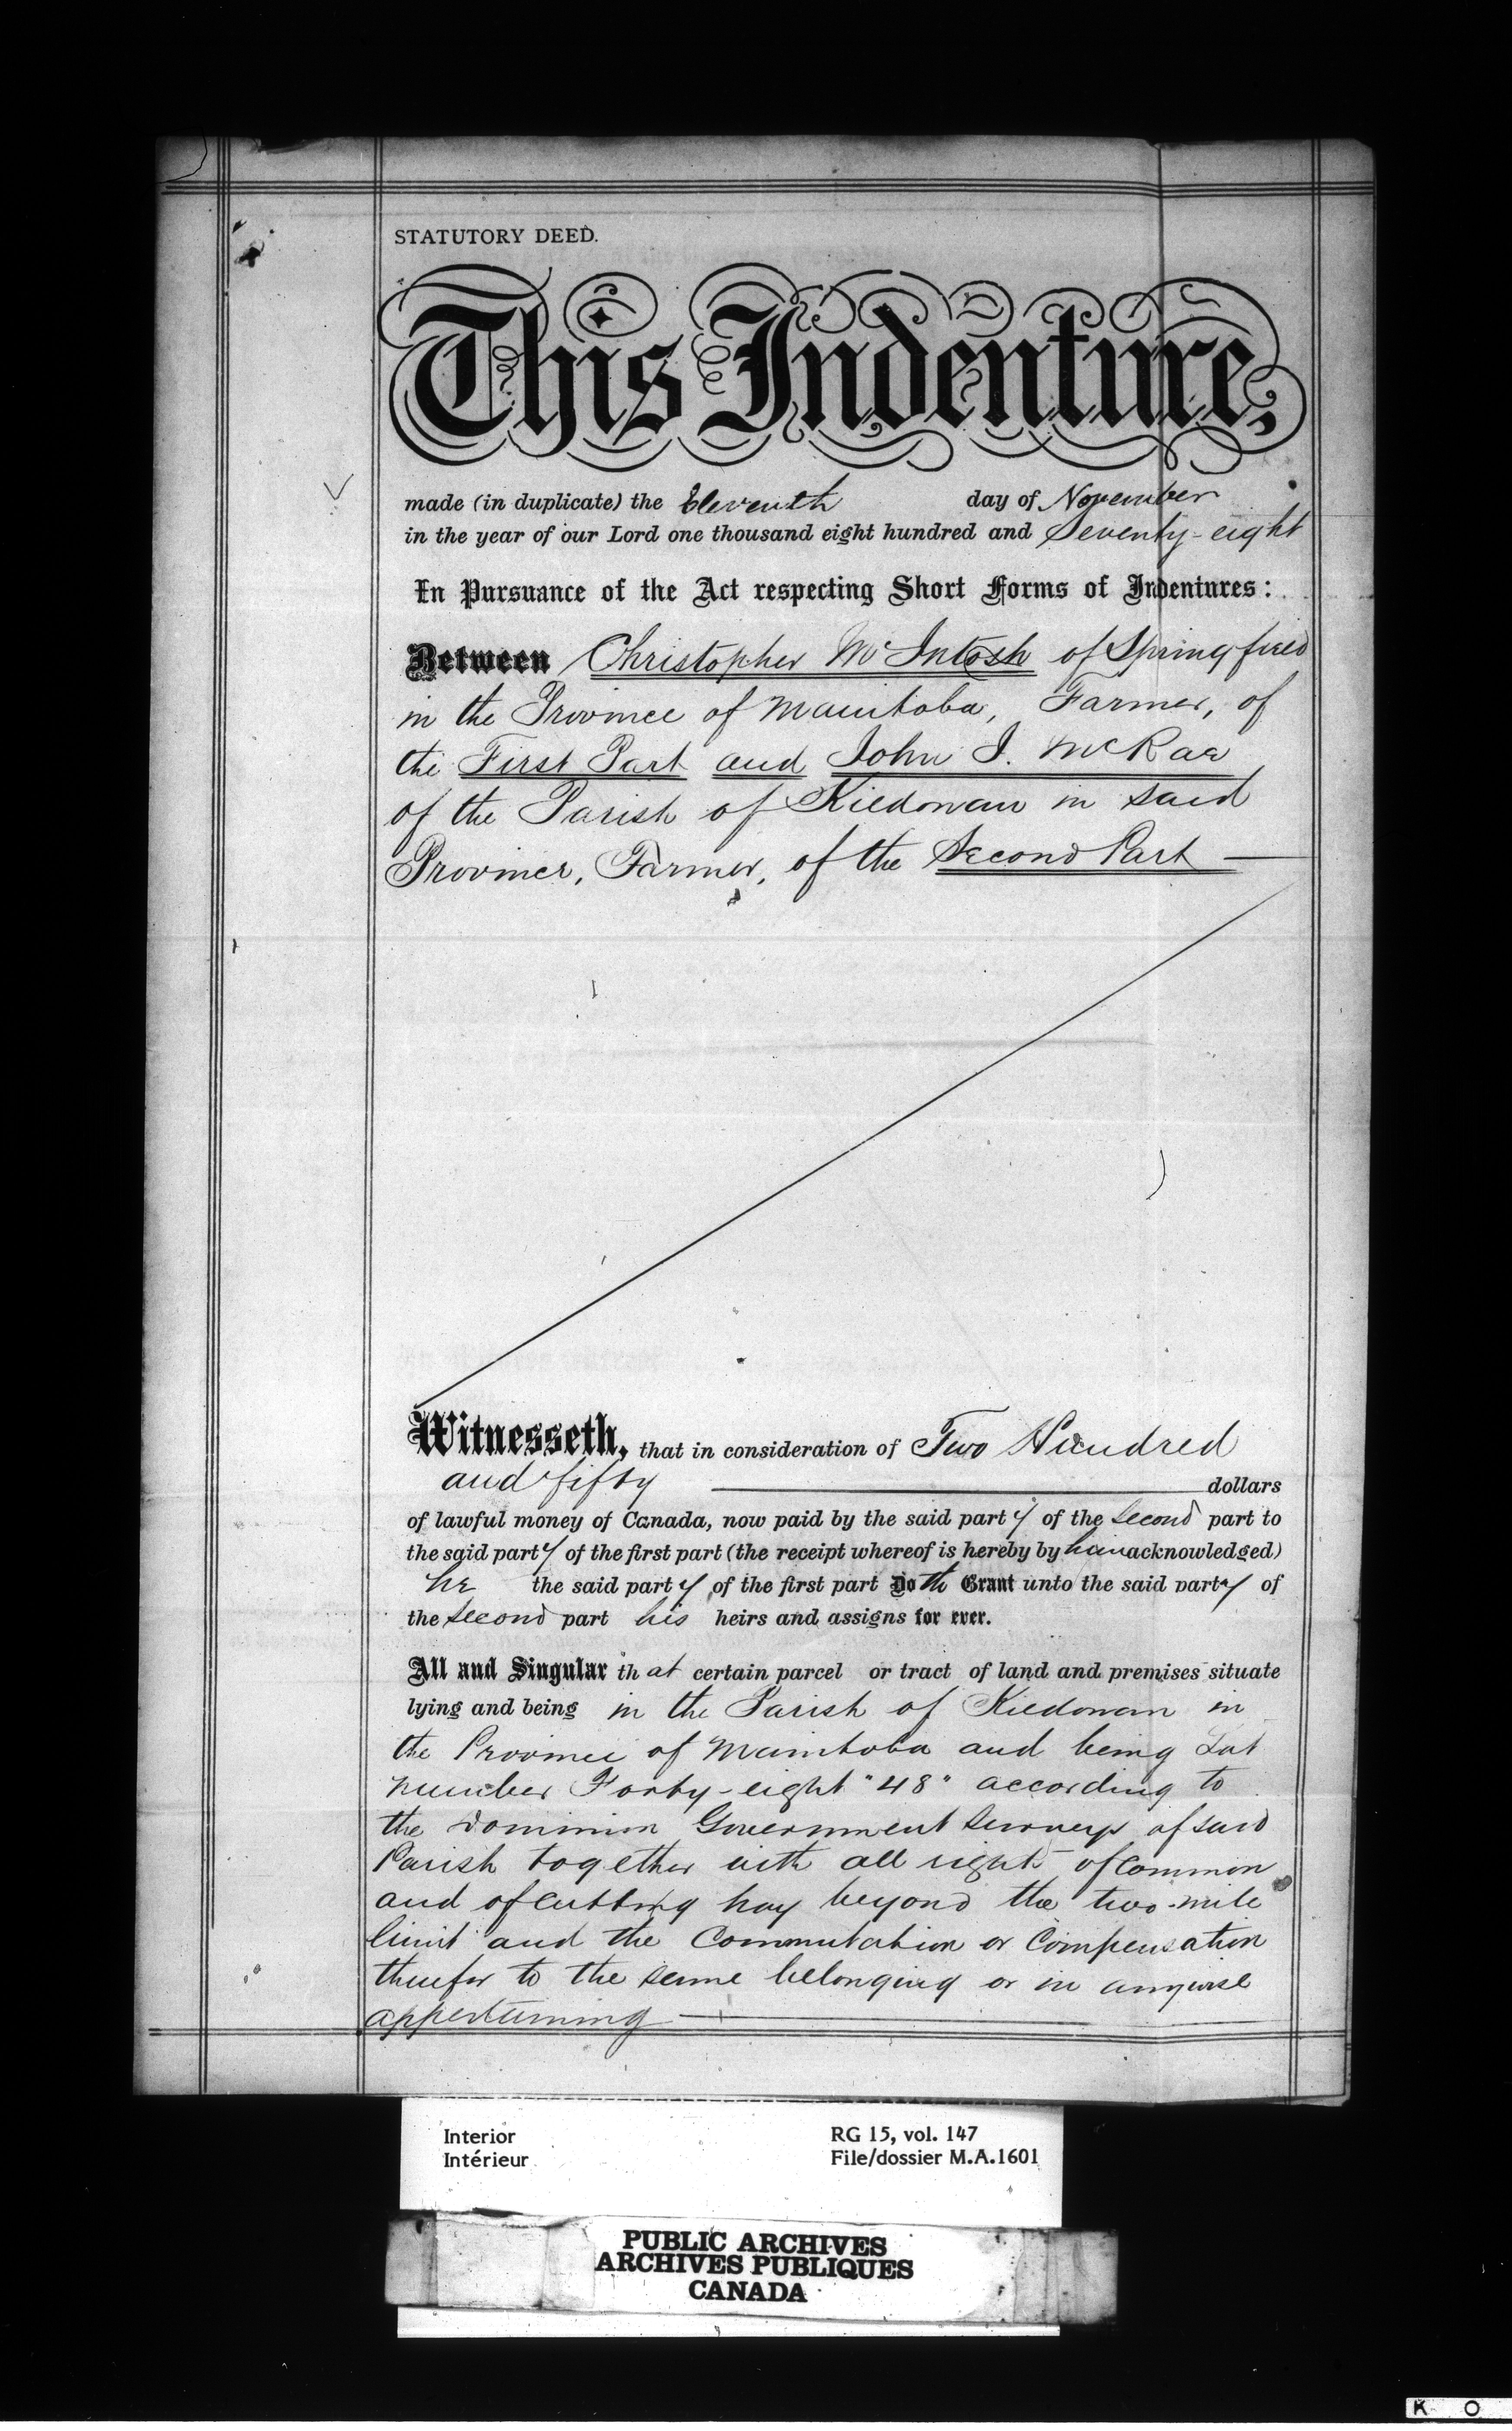 STATUTORY DEED.
This Indenture,
made (in duplicate) the Eleventh day of November
in the year of our Lord one thousand eight hundred and Seventy-eight
In Pursuance of the Act respecting Short Forms of Indentures:
Between Christopher McIntosh of Springfield
in the Province of Manitoba, Farmer, of
the First Part and John I. McRae
of the Parish of Kildonan in said
Province, Farmer, of the Second Part —
Witnesseth, that in consideration of Two Hundred
and fifty dollars
of lawful money of Canada, now paid by the said party of the second part to
the said party of the first part (the receipt whereof is hereby by him acknowledged)
he the said party of the first part Doth Grant unto the said party of
the second part his heirs and assigns for ever.
All and Singular that certain parcel or tract of land and premises situate
lying and being in the Parish of Kildonan in
the Province of Manitoba and being Lot
number Forty-eight "48" according to
the Dominion Government Surveys of said
Parish together with all rights of Common
and of cutting hay beyond the two-mile
limit and the Commutation or Compensation
therefor to the same belonging or in anywise
appertaining —
Interior RG 15, vol. 147
Intérieur File/dossier M.A.1601
PUBLIC ARCHIVES
ARCHIVES PUBLIQUES
CANADA
K O